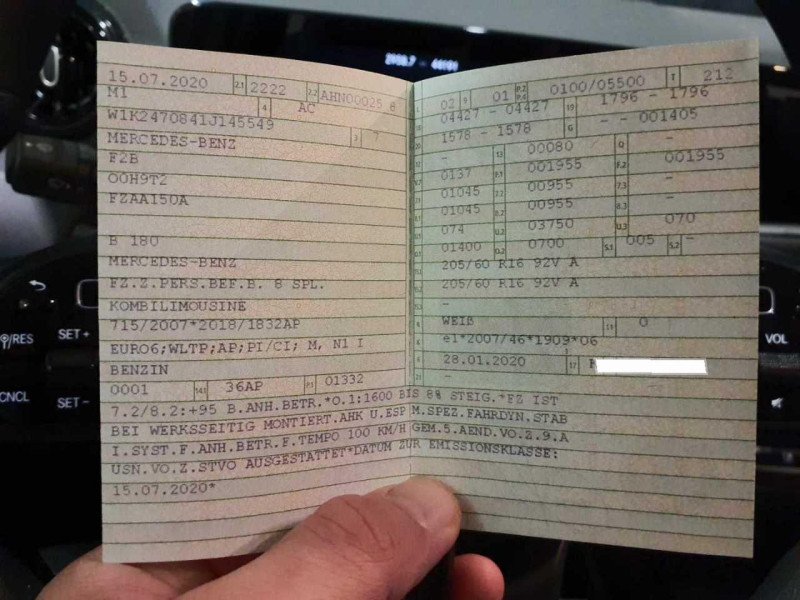 15.07.2020 2.1 2222 2.2 AHN00025 8
M1 4 AC
W1K2470841J145549 3 7
MERCEDES-BENZ
F2B
00H9T2
FZAA150A
B 180
MERCEDES-BENZ
FZ.Z.PERS.BEF.B. 8 SPL.
KOMBILIMOUSINE
715/2007*2018/1832AP
EURO6;WLTP;AP;PI/CI; M, N1 I
BENZIN
0001 14.1 36AP P.1 01332
02 9 01 P.2 P.4 0100/05500 T 212
04427 - 04427 19 1796 - 1796
1578 - 1578 G - - 001405
- 13 00080 Q -
0137 F.1 001955 F.2 001955
01045 7.2 00955 7.3 -
01045 8.2 00955 8.3 -
074 U.2 03750 U.3 070
01400 O.2 0700 S.1 005 S.2 -
205/60 R16 92V A
205/60 R16 92V A
-
WEIß 11 0
e1*2007/46*1909*06
28.01.2020 17
-
7.2/8.2:+95 B.ANH.BETR.*O.1:1600 BIS 8% STEIG.*FZ IST
BEI WERKSSEITIG MONTIERT.AHK U.ESP M.SPEZ.FAHRDYN.STAB
I.SYST.F.ANH.BETR.F.TEMPO 100 KM/H GEM.5.AEND.VO.Z.9.A
USN.VO.Z.STVO AUSGESTATTET*DATUM ZUR EMISSIONSKLASSE:
15.07.2020*
/RES
SET+
CNCL
SET-
VOL